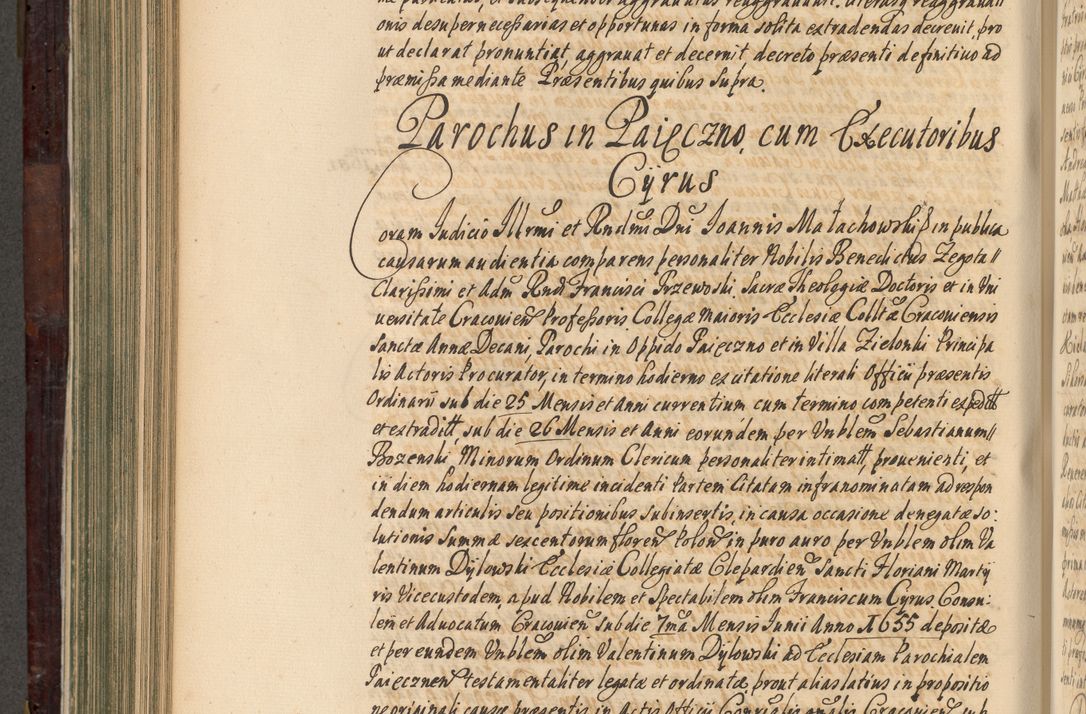 onis desuper necessarias et opportunas in forma solita extradendas decreuit, pro
ut declarat pronuntiat, aggrauat et decernit, decreto præsenti definitiuo ad
præmissa mediante Præsentibus quibus supra.
Parochus in Paięczno, cum Executoribus
Cÿrus
Coram Judicio Illrmi et Rndmi Dni Joannis Małachowski in publica
causarum audientia comparens personaliter Nobilis Benedictus Zegota //
Clarissimi et Adm Rndi Francisci Przewoski Sacræ Theologiæ Doctoris et in Vni
uersitate Cracouien Professoris, Collegæ Maioris Ecclesiæ Colltæ Cracouiensis
Sanctæ Annæ Decani, Parochi in Oppido Paięczno et in Villa Zielonki Principa
lis Actoris Procurator, in termino hodierno ex citatione literali Officii præsentis
Ordinarii sub die 25 Mensis et Anni currentium cum termino competenti expeditt
et extraditt, sub die 26 Mensis et Anni eorundem per Vnblem Sebastianum //
Bozenski, Minorum Ordinum Clericum personaliter intimatt, prouenienti, et
in diem hodiernam legitime incidenti Partem Citatam infranominatam ad respon
dendum articulis seu positionibus subinsertis, in causa occasione denegatæ so:
lutionis Summæ sexcentorum floren Polon in puro auro per Vnblem olim Va
lentinum Dÿlowski Ecclesiæ Collegiatæ Clepardien Sancti Floriani Martÿ
ris Vicecustodem, apud Nobilem et Spectabilem olim Franciscum Cÿrus Consu:
lem et Aduocatum Cracouien sub die 7ma Mensis Iunii Anno 1655 depositæ
et per eundem Vnblem olim Valentinum Dÿlowski ad Ecclesiam Parochialem
Paięcznen testamentaliter legatæ et ordinatæ prout alias latius in propositio
ne originali causæ præsentis in Actis Officii